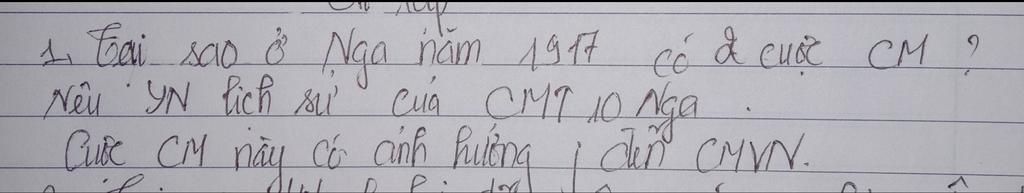 1. Tại sao ở Nga năm 1917 có 2 cuộc CM ?
Nêu YN lịch sử của CMT 10 Nga .
Cuộc CM này có ảnh hưởng j đến CMVN.